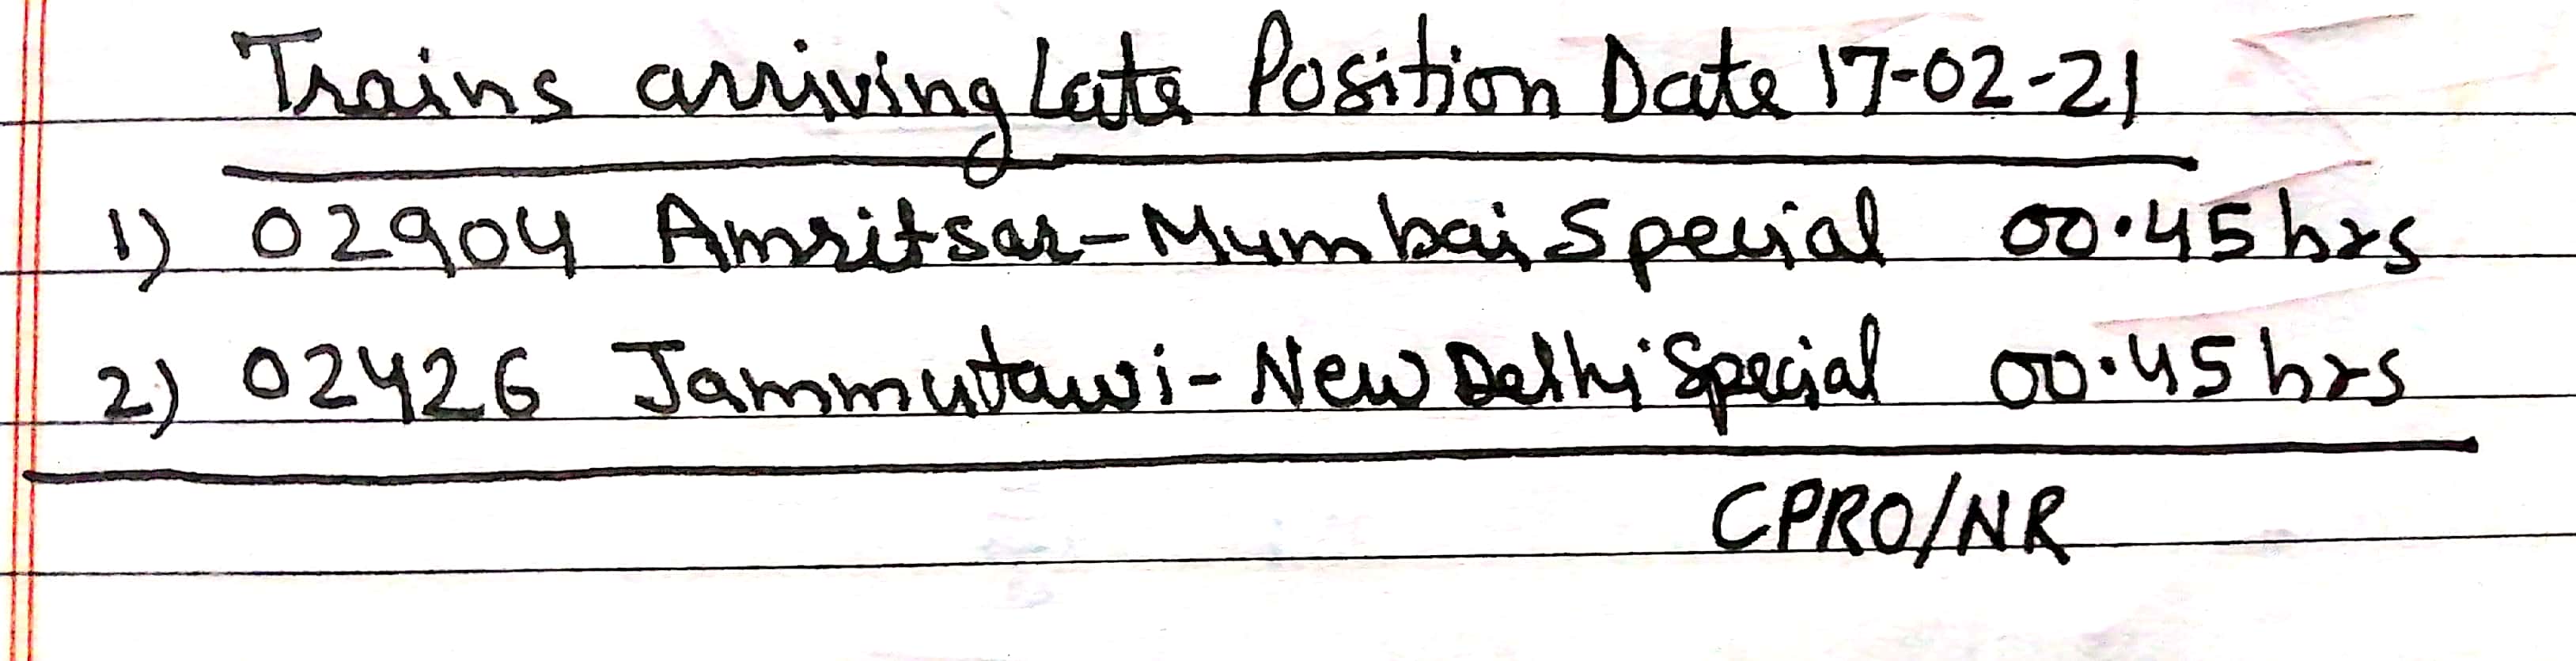 Trains arriving Late Position Date 17-02-21
1) 02904 Amritsar-Mumbai Special 00.45 hrs
2) 02426 Jammutawi-New Delhi Special 00.45 hrs
CPRO/NR